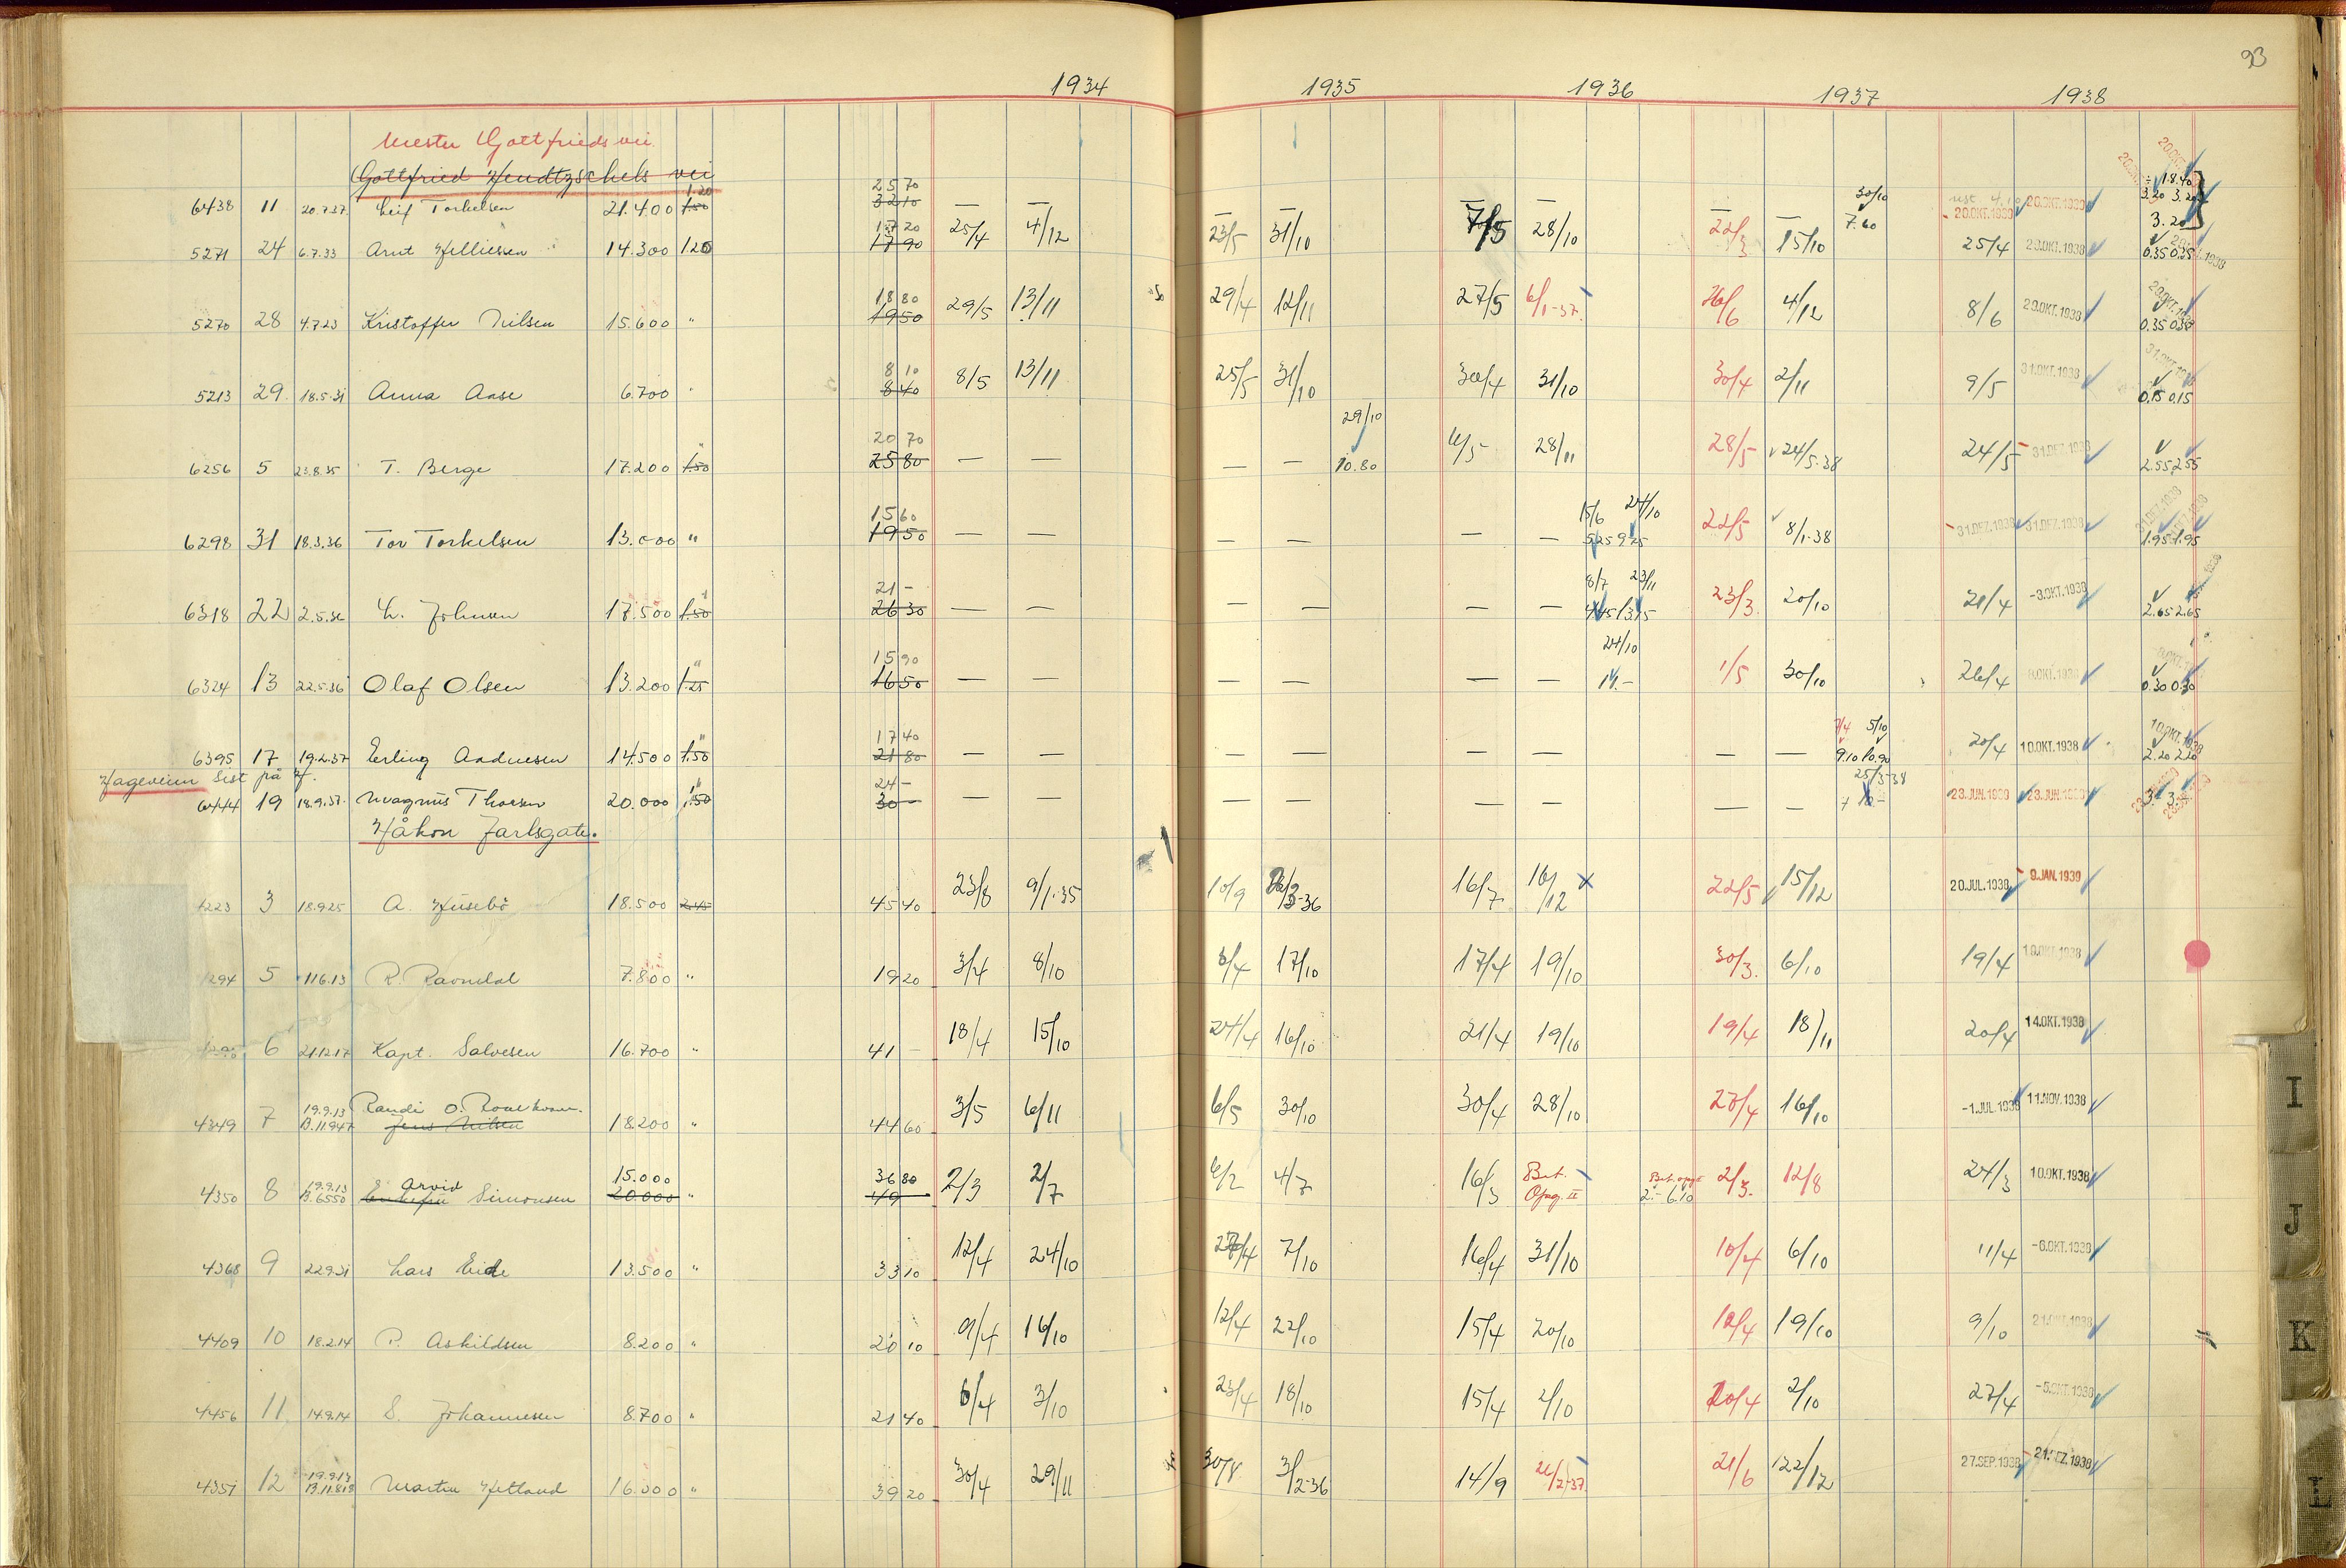 93
1934 1935 1936 1937 1938
Mester Gottfrieds vei.
Gottfried Hendtzschels vei
6438 11 20.7.37. Leif Torkelsen 21.400 1.50 1.20 25 70 32 10 — — — — — — — — 30/10 7.60 20.OKT.1939 20.OKT.1939 3.20 3.20 3.20
5271 24 6.7.33 Arnt Helliesen 14.300 1.20 17 20 17 90 25/4 4/12 23/5 31/10 7/5 28/10 22/3 15/10 25/4 29.OKT.1938 0.35 0.35
5270 28 4.7.23 Kristoffer Nilsen 15.600 " 18 80 19 50 29/5 13/11 29/4 12/11 27/5 6/1-37. 26/6 4/12 8/6 29.OKT.1938 0.35 0.35
5213 29 18.5.31 Anna Aase 6.700 " 8 10 8 40 8/5 13/11 25/5 31/10 30/4 31/10 30/4 2/11 9/5 31.OKT.1938 0.15 0.15
6256 5 23.8.35 T. Berge 17.200 1.50 " 20 70 25 80 — — — — 29/10 10.80 4/5 28/11 28/5 24/5-38 24/5 31.DEZ.1938 2.55 2.55
6298 31 18.3.36 Tor Torkelsen 13.000 " 15 60 19 50 — — — — — — 15/6 24/10 5.25 9.25 22/5 8/1-38 31.DEZ.1938 31.DEZ.1938 1.95 1.95
6318 22 2.5.36 L. Johnsen 17.500 1.50 " 21 – 26 30 — — — — — — 8/7 23/11 4.45 13.15 23/3. 20/10 21/4 -3.OKT.1938 2.65 2.65
6324 13 22.5.36 Olaf Olsen 13.200 1.25 " 15 90 16 50 — — — — — — 24/10 14.- 1/5 30/10 26/4 8.OKT.1938 0.30 0.30
6395 17 19.2.37 Erling Andresen 14.500 1.50 " 17 40 21 80 — — — — — — — — 7/4 5/10 9.10 10.90 20/4 10.OKT.1938 2.20 2.20
Hageveien sist på H.
6444 19 18.9.37. Magnus Thorsen 20.000 1.50 " 24 – 30 – — — — — — — — — 25/3-38 23.JUN.1939 23.JUN.1939 3.- 3.-
Håkon Jarlsgate.
1223 3 18.9.25 A. Husebö 18.500 2.45 45 40 23/8 9/1-35 10/9 3-36 16/7 16/12 22/5 15/12 20.JUL.1938 9.JAN.1939
1294 5 11.6.13 R. Ravndal 7.800 " 19 20 3/4 8/10 3/4 17/10 17/4 19/10 30/3. 6/10 19/4 19.OKT.1938
6 21.12.17 Kapt. Salvesen 16.700 " 41 – 18/4 15/10 24/4 16/10 21/4 19/10 19/4 18/11 20/4 14.OKT.1938
4349 7 19.9.13 B.11.947 Randi O. Jens Nilsen 18.200 " 44 60 3/5 6/11 6/5 30/10 30/4 28/10 27/4 16/10 -1.JUL.1938 11.NOV.1938
4350 8 19.9.13 B.6550 Arvid Simonsen 15.000 20.000 " 36 80 49 – 2/3 2/7 6/2 4/7 16/3 Bet. Opg. II Bet. opg. 2.- 6.10 2/3. 12/8 24/3 10.OKT.1938
4368 9 22.9.31 Lars Eide 13.500 " 33 10 12/4 24/10 27/4 7/10 16/4 31/10 10/4 6/10 11/4 -6.OKT.1938
4409 10 18.2.14 P. Askildsen 8.200 " 20 10 9/4 16/10 12/4 22/10 15/4 20/10 12/4 19/10 9/10 21.OKT.1938
4456 11 14.9.14 S. Johannesen 8.700 " 21 40 6/4 3/10 23/4 18/10 15/4 2/10 20/4 2/10 27/4 -5.OKT.1938
4351 12 19.9.13 B.11.818 Martin Hetland 16.000 " 39 20 30/4 29/11 30/8 3/2-36 14/9 22/2-37 21/6 22/12 27.SEP.1938 21.DEZ.1938
I
J
K
L